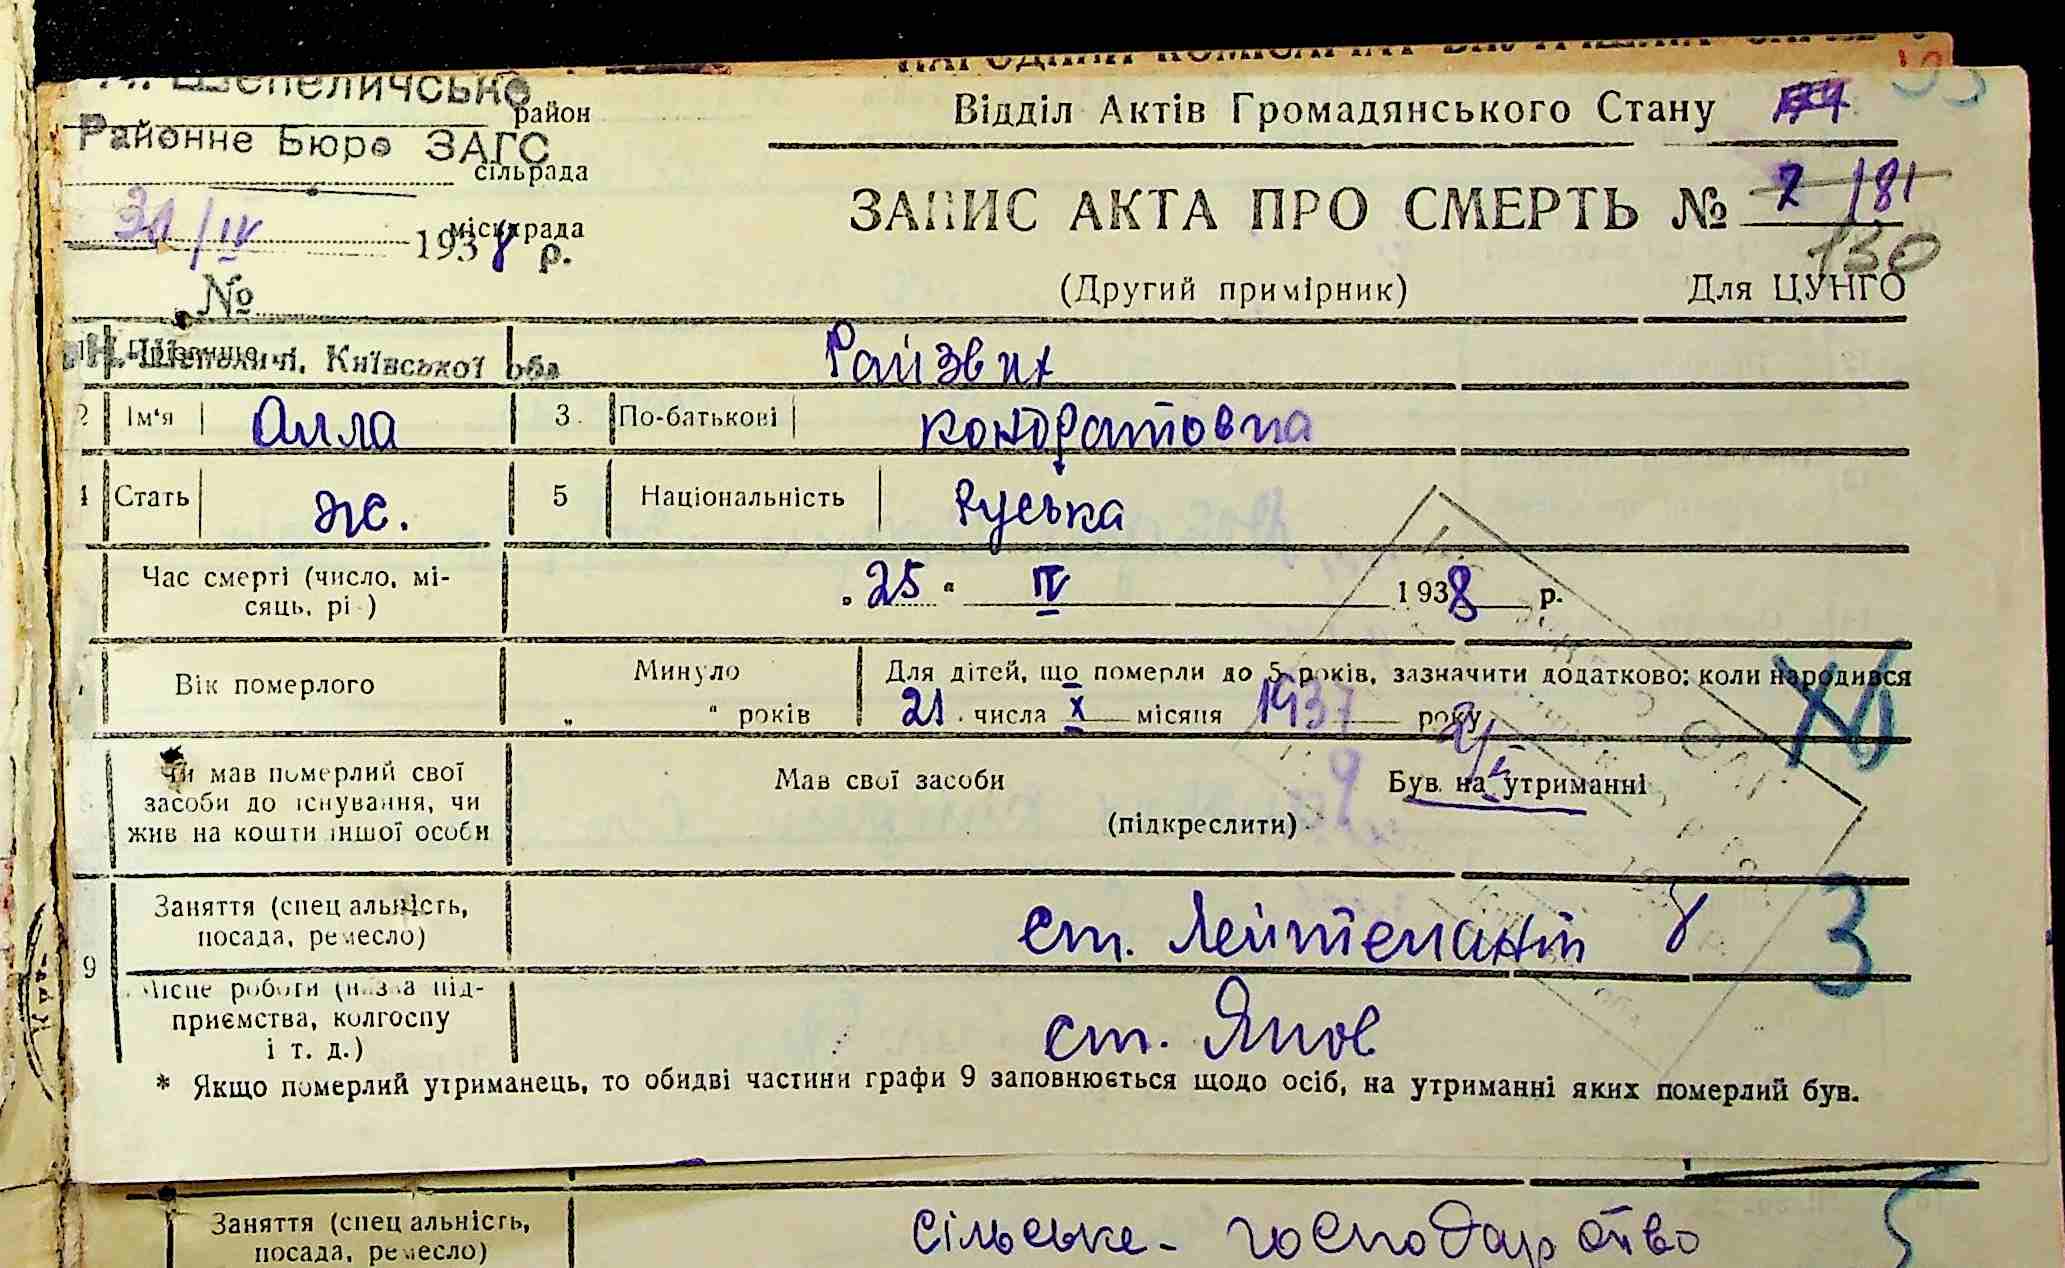 НАРОДНИЙ КОМІСАРІАТ ВНУТРІШНІХ СПРАВ
Н. Шепеличсько
район
Відділ Актів Громадянського Стану
Районне Бюро ЗАГС
сільрада
ЗАПИС АКТА ПРО СМЕРТЬ № 7/81
міськрада
31/IV 1938 р.
130
№
(Другий примірник) Для ЦУНГО
1 Прізвище Райзвих
Н. Шепеличі, Київської обл
2 Ім'я Алла 3 По-батькові Кондратовна
4 Стать ж. 5 Національність Руська
Час смерті (число, мі-
сяць, рі ) „25“ IV 1938 р.
Вік померлого
Минуло
„ “ років
Для дітей, що померли до 5 років, зазначити додатково: коли народився
21 числа X місяця 1937 року
Чи мав померлий свої
засоби до існування, чи
жив на кошти іншої особи
Мав свої засоби Був на утриманні
(підкреслити)
9
Заняття (спец альність,
посада, ремесло)
ст. Лейтенант
3
Місце роботи (назва під-
приємства, колгоспу
і т. д.)
ст. Янов
* Якщо померлий утриманець, то обидві частини графи 9 заповнюється щодо осіб, на утриманні яких померлий був.
Заняття (спец альність,
посада, ремесло)
Сільське-господарство
5